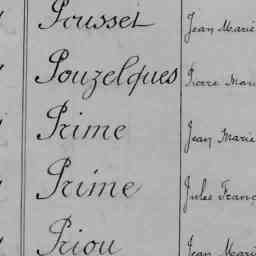 Pousset Jean Marie
Pouzelgues Pierre Marie
Prime Jean Marie
Prime Jules Franç
Priou Jean Marie